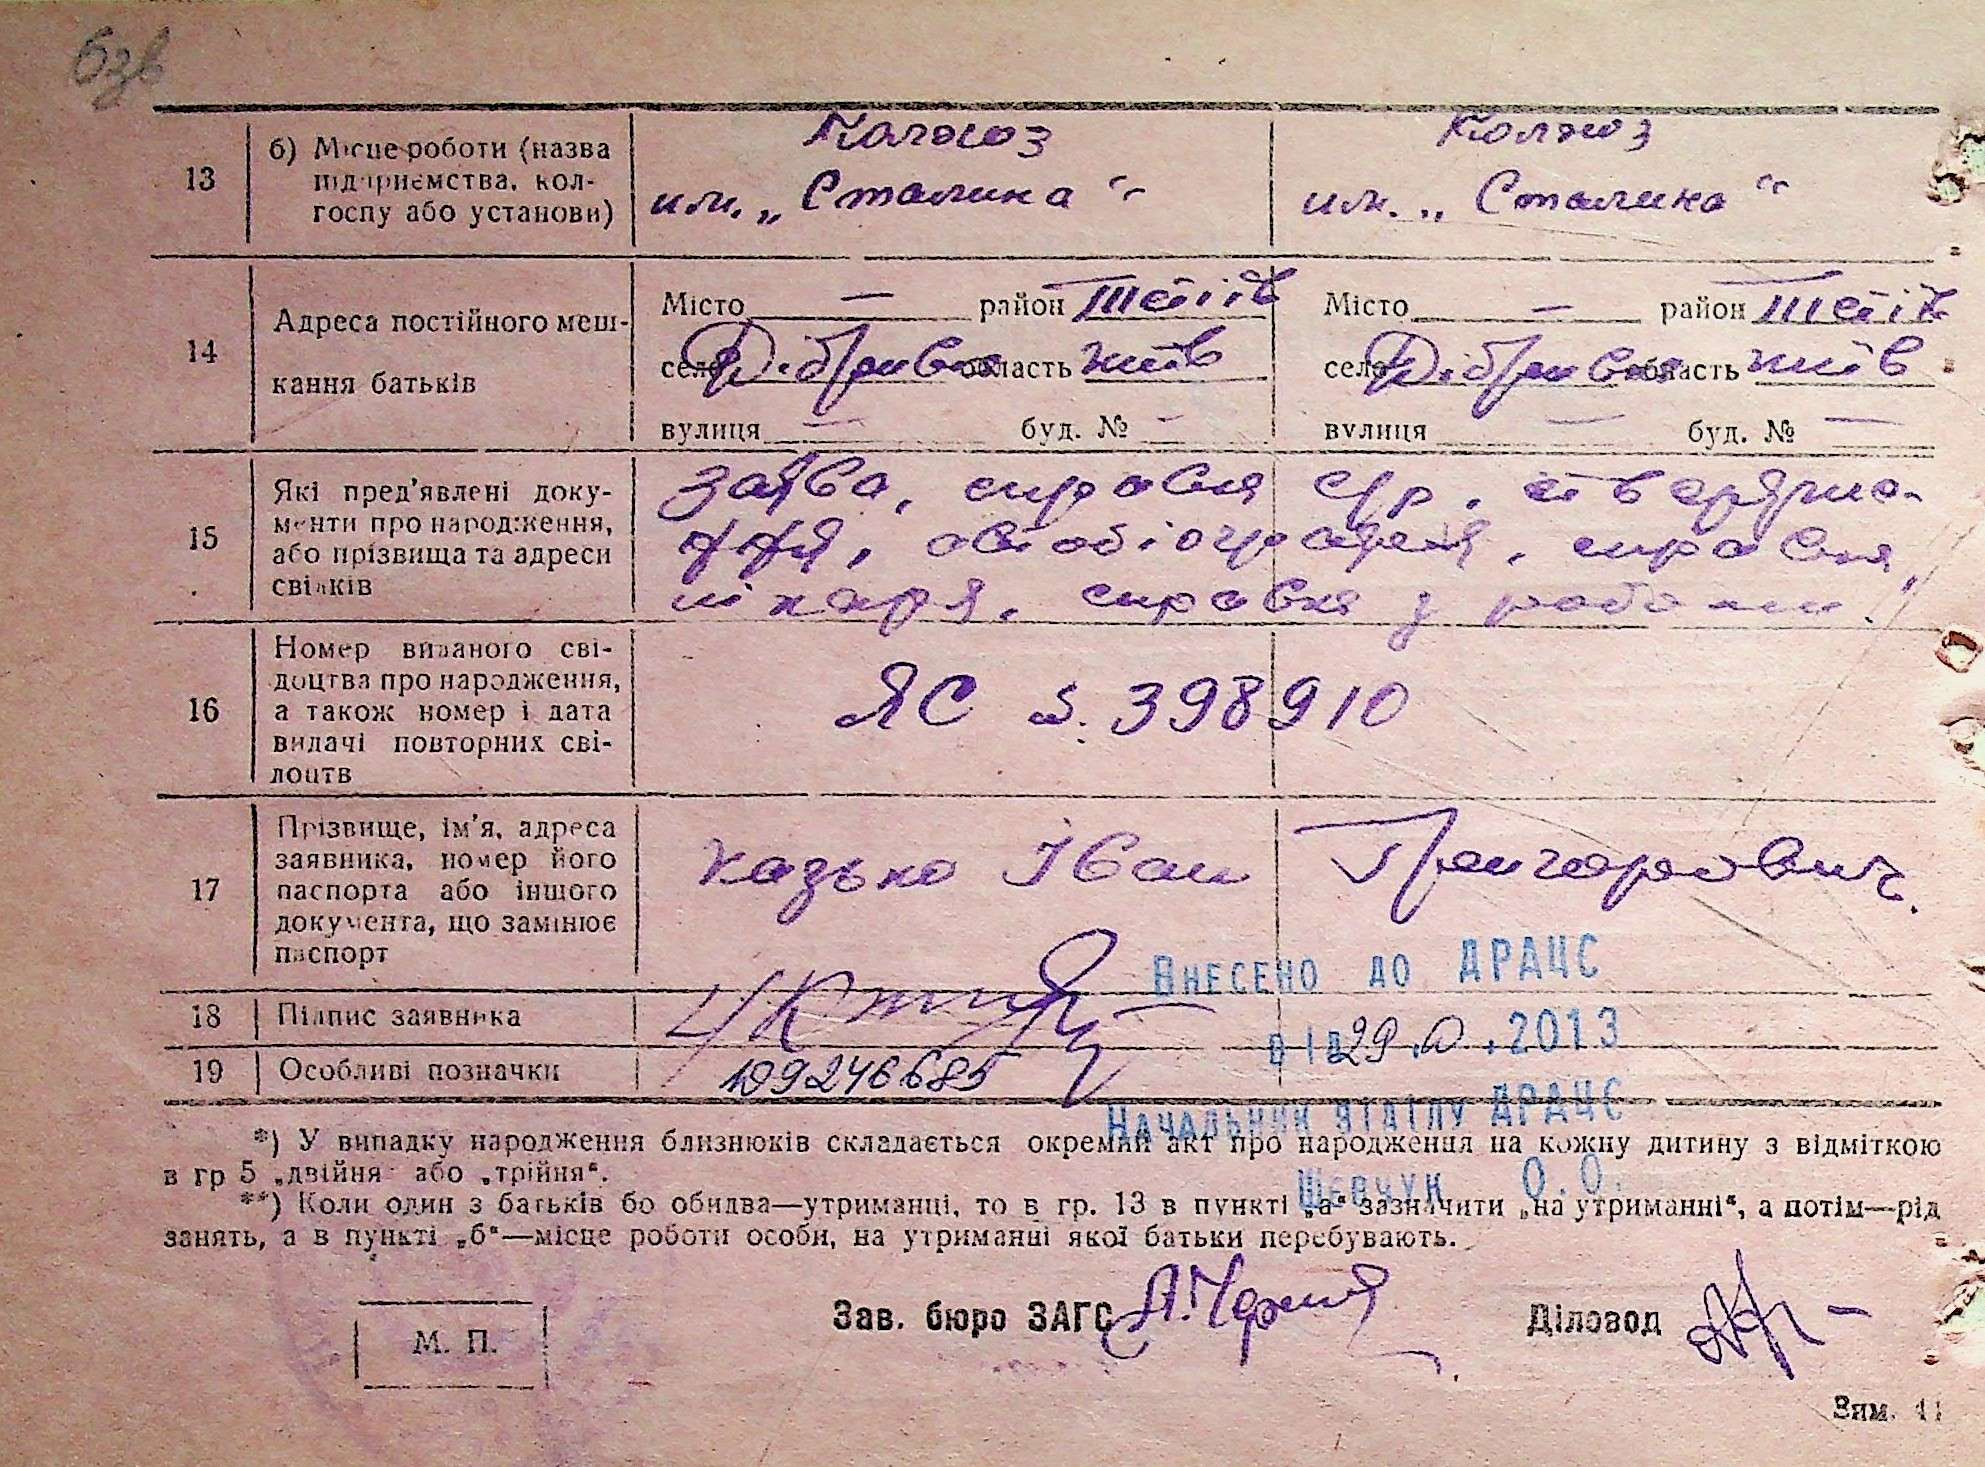 бзв
13
б) Місце роботи (назва
підприємства, кол-
госпу або установи)
Колхоз
им. „Сталина“
Колхоз
им. „Сталина“
14
Адреса постійного меш-
кання батьків
Місто — район Тетіїв
село Дібрівка область Київ
вулиця — буд. № —
Місто — район Тетіїв
село Дібрівка область Київ
вулиця — буд. № —
15
Які пред'явлені доку-
менти про народження,
або прізвища та адреси
свідків
заява, справка с/р,
автобіографія, справка
лікаря, справка з роботи.
16
Номер виданого сві-
доцтва про народження,
а також номер і дата
видачі повторних сві-
доцтв
ЯС 398910
17
Прізвище, ім'я, адреса
заявника, номер його
паспорта або іншого
документа, що замінює
паспорт
Казько Іван Григорович.
18
Підпис заявника
19
Особливі позначки
109246685
Внесено до ДРАЦС
від 29. .2013
Начальник відділу ДРАЦС
Шевчук О.О.
*) У випадку народження близнюків складається окремий акт про народження на кожну дитину з відміткою
в гр 5 „двійня“ або „трійня“.
**) Коли один з батьків бо обидва—утриманці, то в гр. 13 в пункті „а“ зазначити „на утриманні“, а потім—рід
занять, а в пункті „б“—місце роботи особи, на утриманні якої батьки перебувають.
М. П.
Зав. бюро ЗАГС
Діловод
Зам. 41